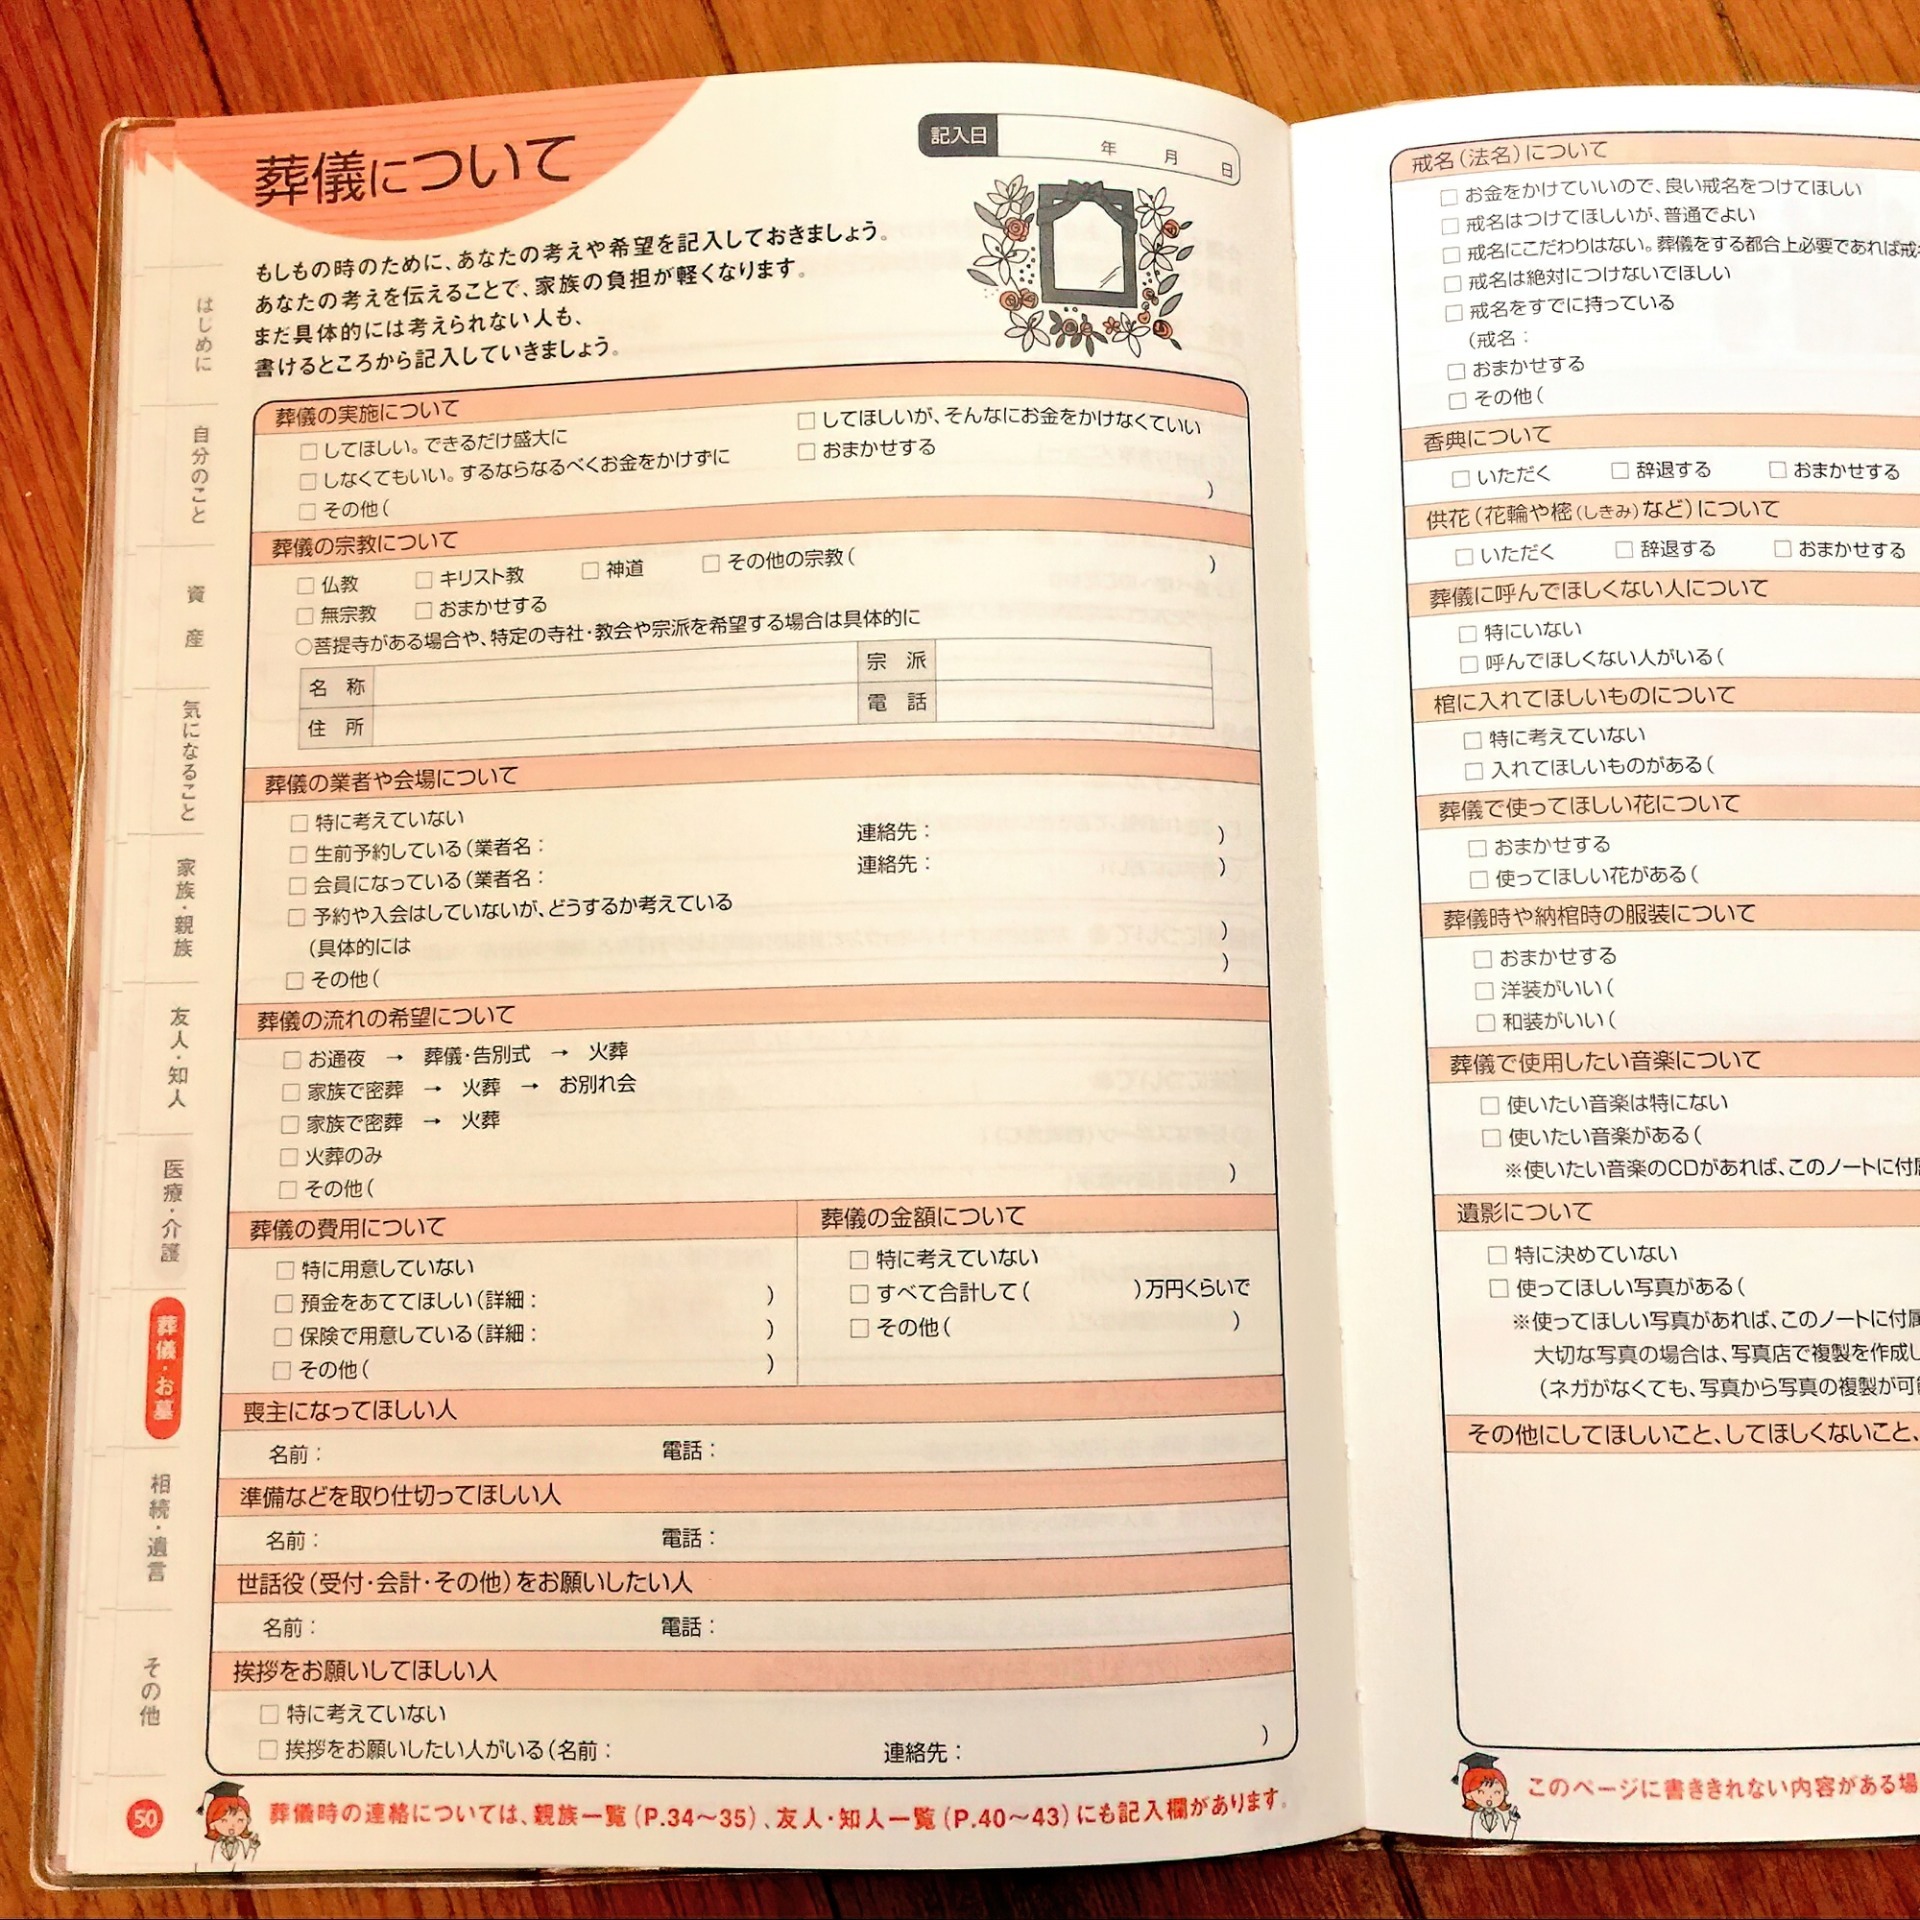 葬儀について
記入日 年 月 日
もしもの時のために、あなたの考えや希望を記入しておきましょう。
あなたの考えを伝えることで、家族の負担が軽くなります。
まだ具体的には考えられない人も、
書けるところから記入していきましょう。
葬儀の実施について
□してほしい。できるだけ盛大に □してほしいが、そんなにお金をかけなくていい
□しなくてもいい。するならなるべくお金をかけずに □おまかせする
□その他( )
葬儀の宗教について
□仏教 □キリスト教 □神道 □その他の宗教( )
□無宗教 □おまかせする
○菩提寺がある場合や、特定の寺社・教会や宗派を希望する場合は具体的に
名 称 宗 派
住 所 電 話
葬儀の業者や会場について
□特に考えていない
□生前予約している(業者名: 連絡先: )
□会員になっている(業者名: 連絡先: )
□予約や入会はしていないが、どうするか考えている
(具体的には )
□その他( )
葬儀の流れの希望について
□お通夜 → 葬儀・告別式 → 火葬
□家族で密葬 → 火葬 → お別れ会
□家族で密葬 → 火葬
□火葬のみ
□その他( )
葬儀の費用について
□特に用意していない
□預金をあててほしい(詳細: )
□保険で用意している(詳細: )
□その他( )
葬儀の金額について
□特に考えていない
□すべて合計して( )万円くらいで
□その他( )
喪主になってほしい人
名前: 電話:
準備などを取り仕切ってほしい人
名前: 電話:
世話役(受付・会計・その他)をお願いしたい人
名前: 電話:
挨拶をお願いしてほしい人
□特に考えていない
□挨拶をお願いしたい人がいる(名前: 連絡先: )
葬儀時の連絡については、親族一覧(P.34〜35)、友人・知人一覧(P.40〜43)にも記入欄があります。
50
はじめに
自分のこと
資 産
気になること
家族・親族
友人・知人
医療・介護
葬儀・お墓
相続・遺言
その他
戒名(法名)について
□お金をかけていいので、良い戒名をつけてほしい
□戒名はつけてほしいが、普通でよい
□戒名にこだわりはない。葬儀をする都合上必要であれば戒
□戒名は絶対につけないでほしい
□戒名をすでに持っている
(戒名:
□おまかせする
□その他(
香典について
□いただく □辞退する □おまかせする
供花(花輪や樒(しきみ)など)について
□いただく □辞退する □おまかせする
葬儀に呼んでほしくない人について
□特にいない
□呼んでほしくない人がいる(
棺に入れてほしいものについて
□特に考えていない
□入れてほしいものがある(
葬儀で使ってほしい花について
□おまかせする
□使ってほしい花がある(
葬儀時や納棺時の服装について
□おまかせする
□洋装がいい(
□和装がいい(
葬儀で使用したい音楽について
□使いたい音楽は特にない
□使いたい音楽がある(
※使いたい音楽のCDがあれば、このノートに付属
遺影について
□特に決めていない
□使ってほしい写真がある(
※使ってほしい写真があれば、このノートに付属
大切な写真の場合は、写真店で複製を作成し
(ネガがなくても、写真から写真の複製が可能
その他にしてほしいこと、してほしくないこと、
このページに書ききれない内容がある場